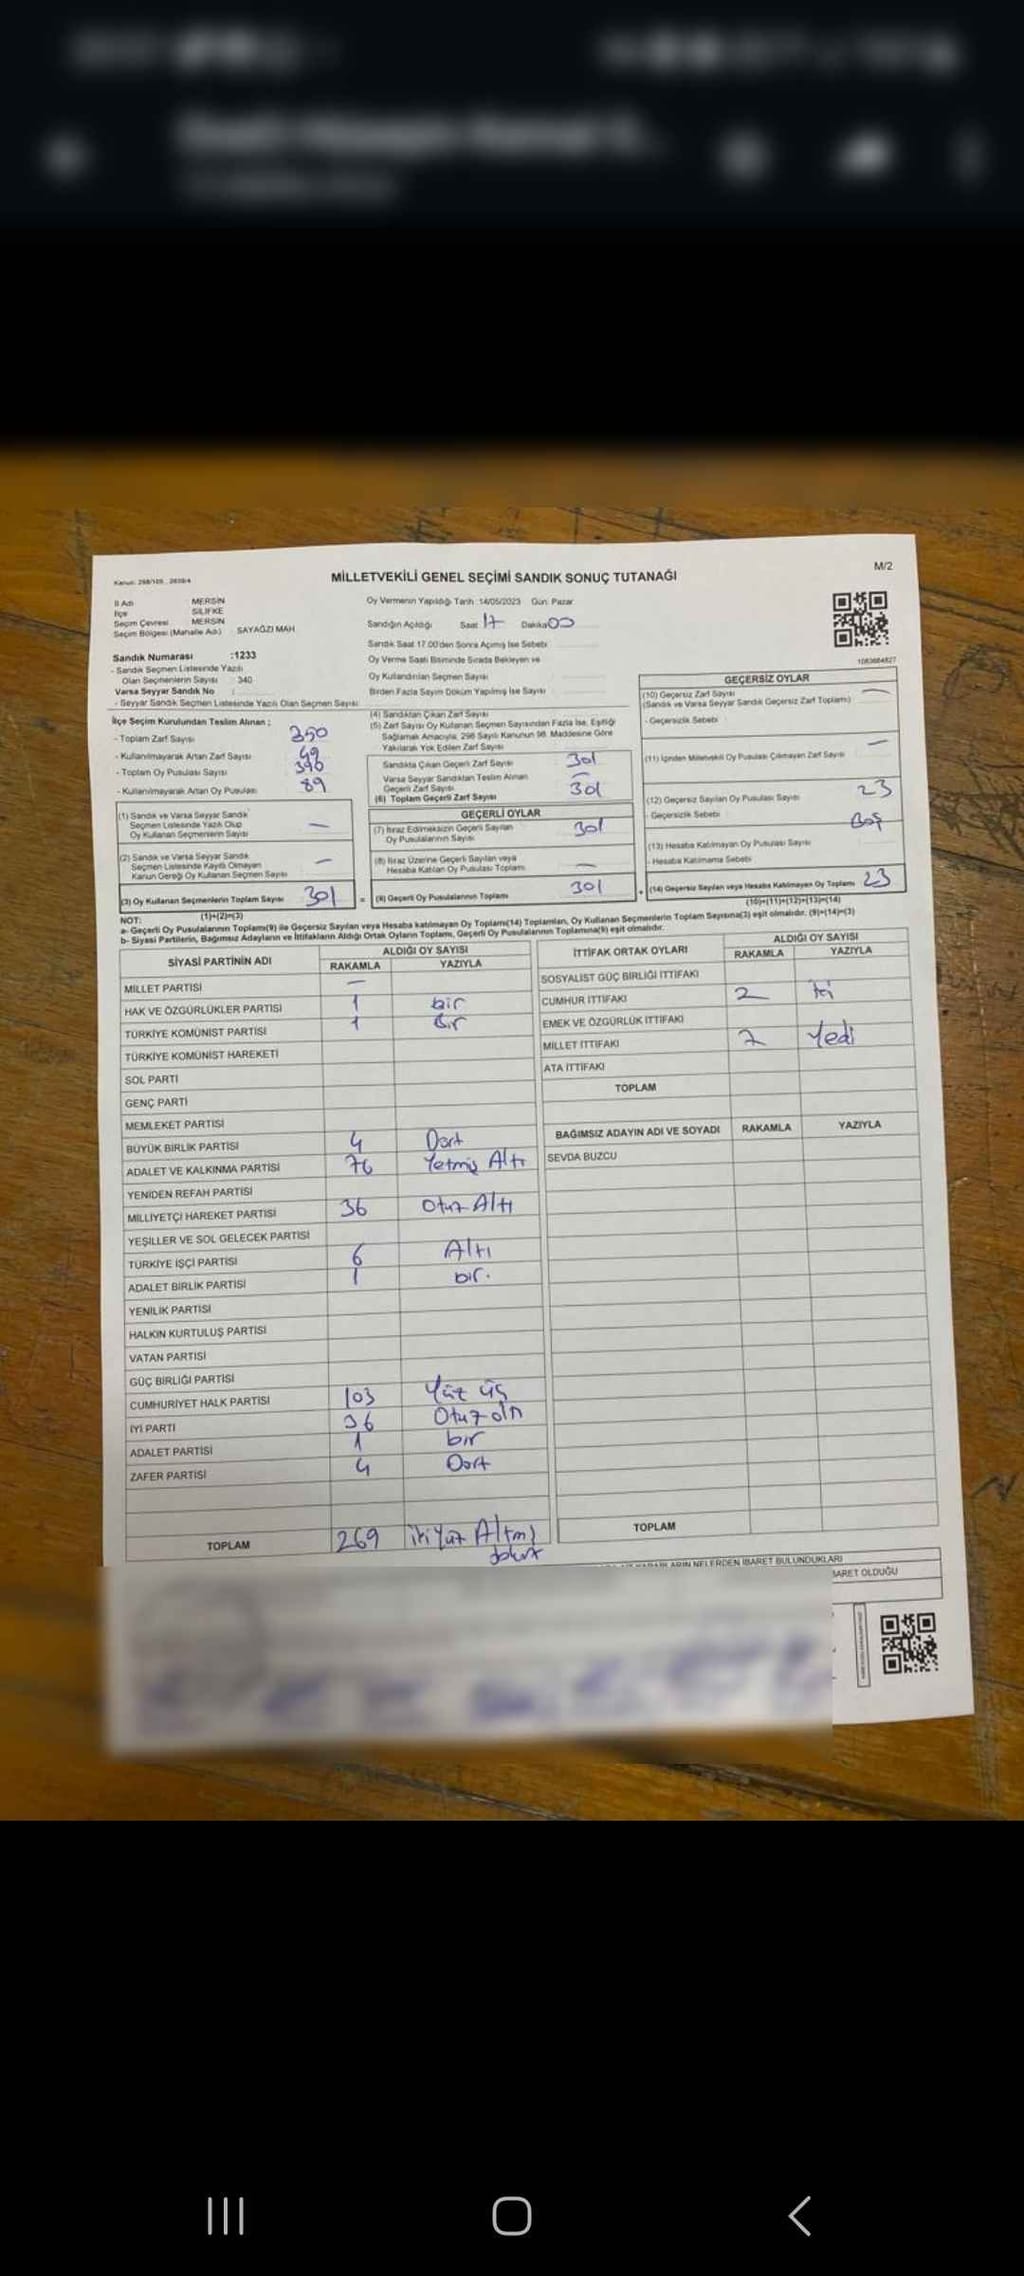 Kanun: 298/105
M/2
MİLLETVEKİLİ GENEL SEÇİMİ SANDIK SONUÇ TUTANAĞI
İl Adı MERSİN
İlçe SİLİFKE
Seçim Çevresi MERSİN
Seçim Bölgesi (Mahalle Adı) SAYAĞZI MAH
Sandık Numarası :1233
- Sandık Seçmen Listesinde Yazılı
Olan Seçmenlerin Sayısı : 340
Varsa Seyyar Sandık No :
- Seyyar Sandık Seçmen Listesinde Yazılı Olan Seçmen Sayısı
Oy Vermenin Yapıldığı Tarih :14/05/2023 Gün: Pazar
Sandığın Açıldığı Saat 17 Dakika 00
Sandık Saat 17.00'den Sonra Açılmış İse Sebebi
Oy Verme Saati Bitiminde Sırada Bekleyen ve
Oy Kullandırılan Seçmen Sayısı
Birden Fazla Sayım Döküm Yapılmış İse Sayısı
1083664827
İlçe Seçim Kurulundan Teslim Alınan ;
- Toplam Zarf Sayısı 350
- Kullanılmayarak Artan Zarf Sayısı 49
- Toplam Oy Pusulası Sayısı 390
- Kullanılmayarak Artan Oy Pusulası 89
(1) Sandık ve Varsa Seyyar Sandık
Seçmen Listesinde Yazılı Olup
Oy Kullanan Seçmenlerin Sayısı —
(2) Sandık ve Varsa Seyyar Sandık
Seçmen Listesinde Kayıtlı Olmayan
Kanun Gereği Oy Kullanan Seçmen Sayısı —
(3) Oy Kullanan Seçmenlerin Toplam Sayısı 301
(1)+(2)=(3)
(4) Sandıktan Çıkan Zarf Sayısı
(5) Zarf Sayısı Oy Kullanan Seçmen Sayısından Fazla İse, Eşitliği
Sağlamak Amacıyla, 298 Sayılı Kanunun 98. Maddesine Göre
Yakılarak Yok Edilen Zarf Sayısı
Sandıkta Çıkan Geçerli Zarf Sayısı 301
Varsa Seyyar Sandıktan Teslim Alınan
Geçerli Zarf Sayısı —
(6) Toplam Geçerli Zarf Sayısı 301
GEÇERLİ OYLAR
(7) İtiraz Edilmeksizin Geçerli Sayılan
Oy Pusulalarının Sayısı 301
(8) İtiraz Üzerine Geçerli Sayılan veya
Hesaba Katılan Oy Pusulası Toplamı —
= (9) Geçerli Oy Pusulalarının Toplamı 301
GEÇERSİZ OYLAR
(10) Geçersiz Zarf Sayısı —
(Sandık ve Varsa Seyyar Sandık Geçersiz Zarf Toplamı)
- Geçersizlik Sebebi
(11) İçinden Milletvekili Oy Pusulası Çıkmayan Zarf Sayısı —
(12) Geçersiz Sayılan Oy Pusulası Sayısı 23
- Geçersizlik Sebebi Boş
(13) Hesaba Katılmayan Oy Pusulası Sayısı
- Hesaba Katılmama Sebebi
+ (14) Geçersiz Sayılan veya Hesaba Katılmayan Oy Toplamı 23
(10)+(11)+(12)+(13)=(14)
NOT:
a- Geçerli Oy Pusulalarının Toplamı(9) ile Geçersiz Sayılan veya Hesaba katılmayan Oy Toplamı(14) Toplamları, Oy Kullanan Seçmenlerin Toplam Sayısına(3) eşit olmalıdır. (9)+(14)=(3)
b- Siyasi Partilerin, Bağımsız Adayların ve İttifakların Aldığı Ortak Oyların Toplamı, Geçerli Oy Pusulalarının Toplamına(9) eşit olmalıdır.
SİYASİ PARTİNİN ADI ALDIĞI OY SAYISI
RAKAMLA YAZIYLA
MİLLET PARTİSİ —
HAK VE ÖZGÜRLÜKLER PARTİSİ 1 bir
TÜRKİYE KOMÜNİST PARTİSİ 1 Bir
TÜRKİYE KOMÜNİST HAREKETİ
SOL PARTİ
GENÇ PARTİ
MEMLEKET PARTİSİ
BÜYÜK BİRLİK PARTİSİ 4 Dört
ADALET VE KALKINMA PARTİSİ 76 Yetmiş Altı
YENİDEN REFAH PARTİSİ
MİLLİYETÇİ HAREKET PARTİSİ 36 Otuz Altı
YEŞİLLER VE SOL GELECEK PARTİSİ
TÜRKİYE İŞÇİ PARTİSİ 6 Altı
ADALET BİRLİK PARTİSİ 1 bir.
YENİLİK PARTİSİ
HALKIN KURTULUŞ PARTİSİ
VATAN PARTİSİ
GÜÇ BİRLİĞİ PARTİSİ
CUMHURİYET HALK PARTİSİ 103 Yüz üç
İYİ PARTİ 36 Otuz altı
ADALET PARTİSİ 1 bir
ZAFER PARTİSİ 4 Dört
TOPLAM 269 ikiYüz Altmış
dokuz
İTTİFAK ORTAK OYLARI ALDIĞI OY SAYISI
RAKAMLA YAZIYLA
SOSYALİST GÜÇ BİRLİĞİ İTTİFAKI
CUMHUR İTTİFAKI 2 iki
EMEK VE ÖZGÜRLÜK İTTİFAKI
MİLLET İTTİFAKI 7 Yedi
ATA İTTİFAKI
TOPLAM
BAĞIMSIZ ADAYIN ADI VE SOYADI RAKAMLA YAZIYLA
SEVDA BUZCU
TOPLAM
NELERDEN İBARET BULUNDUKLARI
BARET OLDUĞU